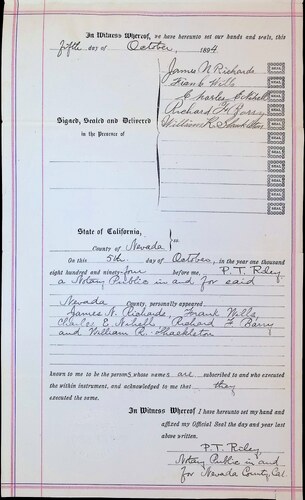 In Witness Whereof, we have hereunto set our hands and seals, this
fifth day of October, 1894
James N Richards
Frank Wills
Charles E
Richard F
William R. Shackleton
Signed, Sealed and Delivered
in the Presence of
SEAL
SEAL
SEAL
SEAL
SEAL
SEAL
SEAL
SEAL
SEAL
SEAL
State of California,
County of Nevada } ss
On this 5th day of October, in the year one thousand
eight hundred and ninety-four before me, P. T. Riley
a Notary Public in and for said
Nevada County, personally appeared
James N. Richards, Frank Wills,
Charles E. Richard F. Barry
and William R. Shackleton
known to me to be the persons whose names are subscribed to and who executed
the within instrument, and acknowledged to me that they
executed the same.
In Witness Whereof I have hereunto set my hand and
affixed my Official Seal the day and year last
above written.
P. T. Riley
Notary Public in and
for Nevada County, Cal